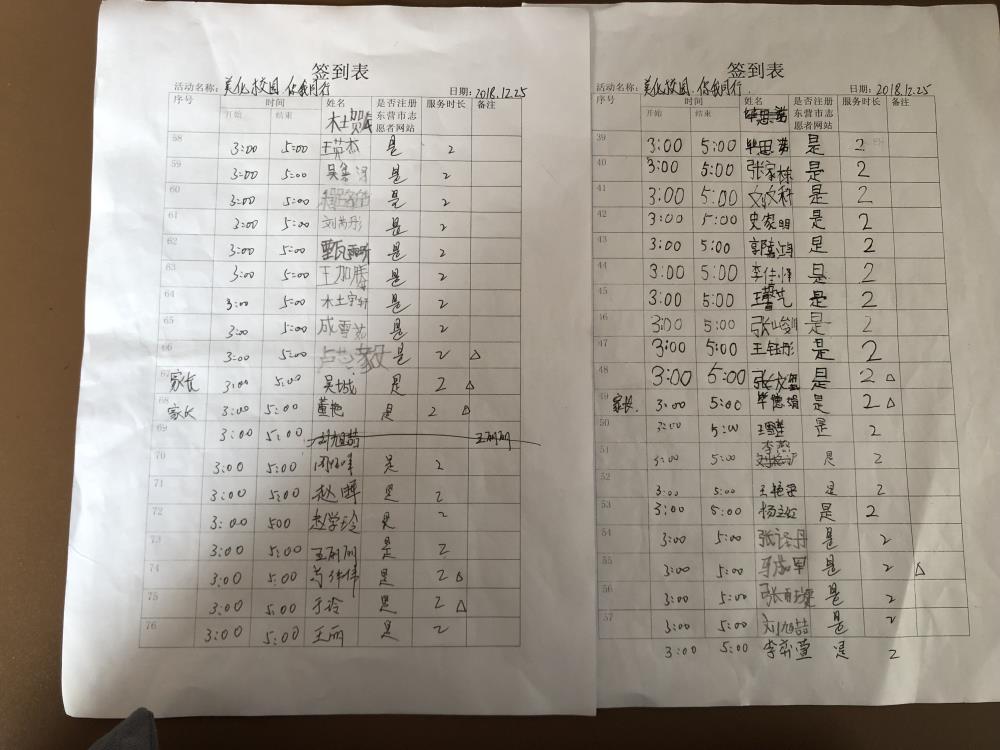 签到表
活动名称: 美化校园 你我同行 日期: 2018.12.25
序号 时间 姓名 是否注册东营市志愿者网站 服务时长 备注
开始 结束
58 3:00 5:00 王英杰 是 2
59 3:00 5:00 是 2
60 3:00 5:00 是 2
61 3:00 5:00 是 2
62 3:00 5:00 是 2
63 3:00 5:00 王加腾 是 2
64 3:00 5:00 是 2
65 3:00 5:00 成雪茹 是 2
66 3:00 5:00 是 2 △
67 家长 3:00 5:00 吴城 是 2 △
68 家长 3:00 5:00 董艳 是 2 △
69 3:00 5:00 刘旭喆 王丽丽
70 3:00 5:00 是 2
71 3:00 5:00 赵晖 是 2
72 3:00 500 赵学玲 是 2
73 3:00 5:00 王丽丽 是 2
74 3:00 5:00 是 2 △
75 3:00 5:00 于玲 是 2 △
76 3:00 5:00 王丽 是 2
签到表
活动名称: 美化校园 你我同行. 日期: 2018.12.25
序号 时间 姓名 是否注册东营市志愿者网站 服务时长 备注
开始 结束
39 3:00 5:00 是 2
40 3:00 5:00 张家栋 是 2
41 3:00 5:00 是 2
42 3:00 5:00 史家明 是 2
43 3:00 5:00 是 2
44 3:00 5:00 是 2
45 3:00 5:00 是 2
46 3:00 5:00 是 2
47 3:00 5:00 王钰彤 是 2
48 3:00 5:00 是 2 △
49 家长. 3:00 5:00 毕德娟 是 2 △
50 3:00 5:00 是 2
51 5:00 李燕 是 2
52 3:00 5:00 是 2
53 3:00 5:00 杨立红 是 2
54 3:00 5:00 是 2
55 3:00 5:00 是 2 △
56 3:00 5:00 是 2
57 3:00 5:00 刘旭喆 是 2
3:00 5:00 李奕萱 是 2